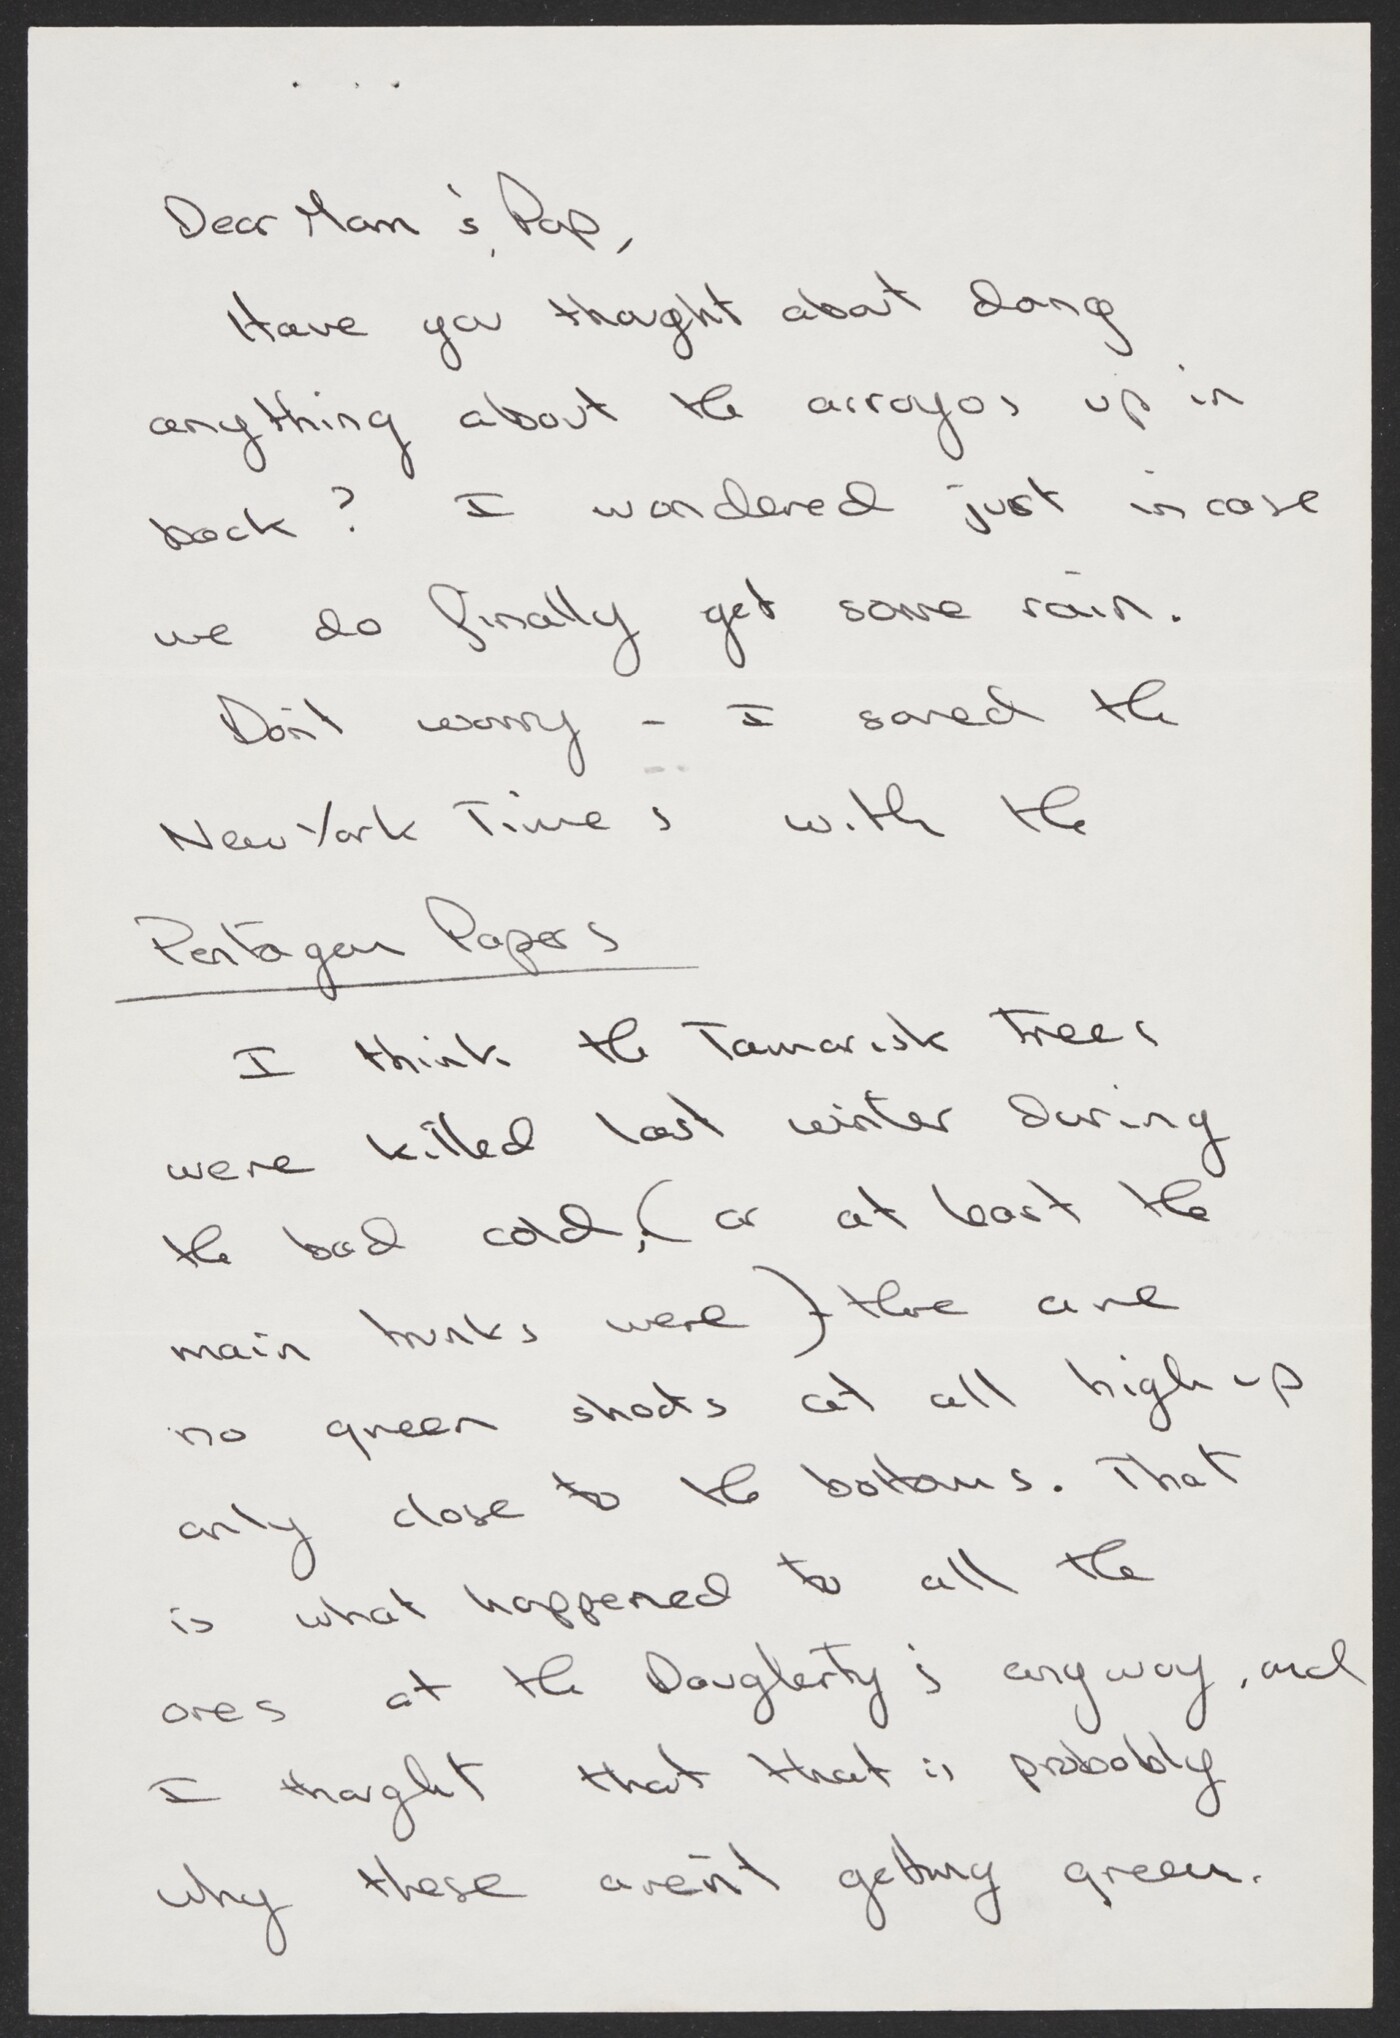 Dear Mam & Pap,
Have you thought about doing
anything about the arroyos up in
back? I wondered just in case
we do finally get some rain.
Don't worry - I saved the
New York Times with the
Pentagon Papers
I think the Tamarisk Trees
were killed last winter during
the bad cold, (or at least the
main trunks were) - there are
no green shoots at all high up
only close to the bottoms. That
is what happened to all the
ones at the Daugherty's anyway, and
I thought that that is probably
why these aren't getting green.